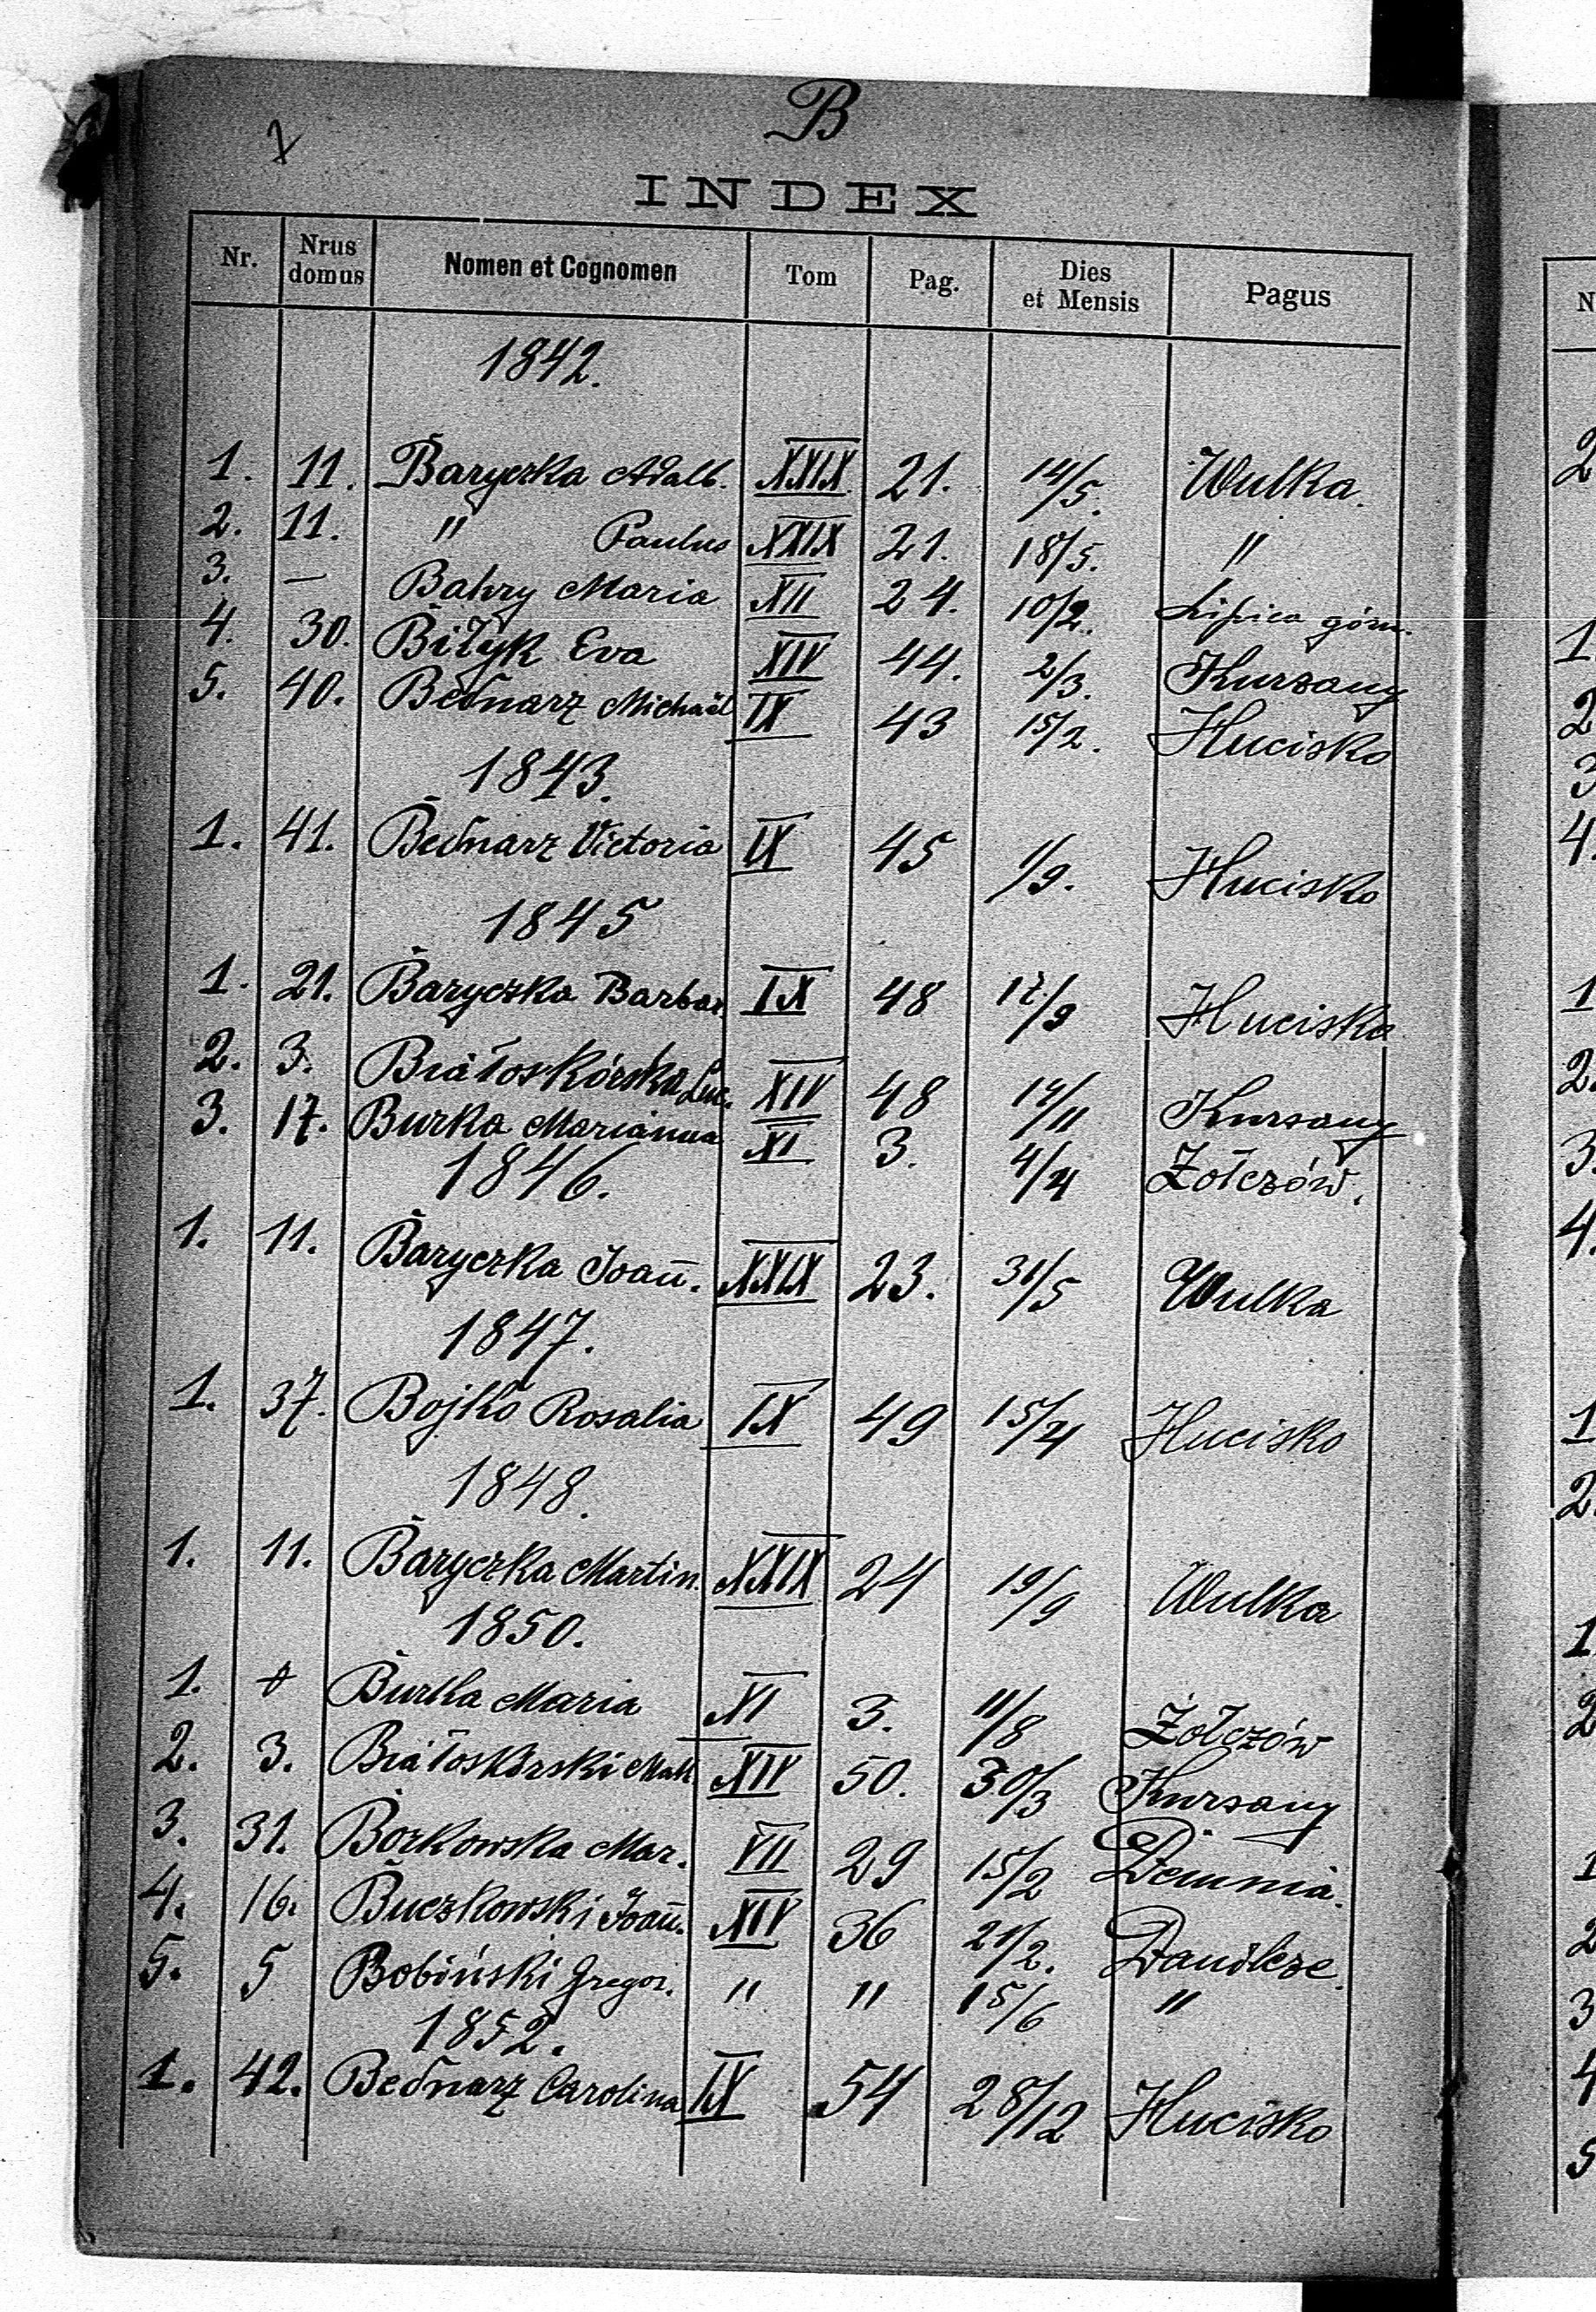 B
INDEX
Nr. Nrus domus Nomen et Cognomen Tom Pag. Dies et Mensis Pagus
1842.
1. 11. Baryczka Adalb. XXIX 21. 14/5. Wulka
2. 11. " Paulus XXIX 21. 18/5. "
3. — Bahry Maria XII 24. 10/2. Lipica górn.
4. 30. Biłyk Eva XIV 44. 2/3. Kurzany
5. 40. Bednarz Michaël IX 43 15/2. Hucisko
1843.
1. 41. Bednarz Victoria IX 45 1/9. Hucisko
1845
1. 21. Baryczka Barbar IX 48 17/9 Hucisko
2. 3. Białoskórska Luc. XIV 48 14/11 Kurzany
3. 17. Burka Marianna XI 3. 4/4 Żołczów.
1846.
1. 11. Baryczka Joan̄. XXIX 23. 31/5 Wulka
1847.
1. 37. Bojko Rosalia IX 49 15/4 Hucisko
1848.
1. 11. Baryczka Martin. XXIX 24 19/9 Wulka
1850.
1. Burka Maria XI 3. 11/8 Żołczów
2. 3. Białoskórski Math XIV 50. 30/3 Kurzany
3. 31. Borkowska Mar. VII 29 15/2 Demnia.
4. 16. Buczkowski Joan̄. XIV 36 21/2. Danilcze
5. 5 Bobiński Gregor. " " 15/6 "
1852.
1. 42. Bednarz Carolina IX 54 28/12 Hucisko